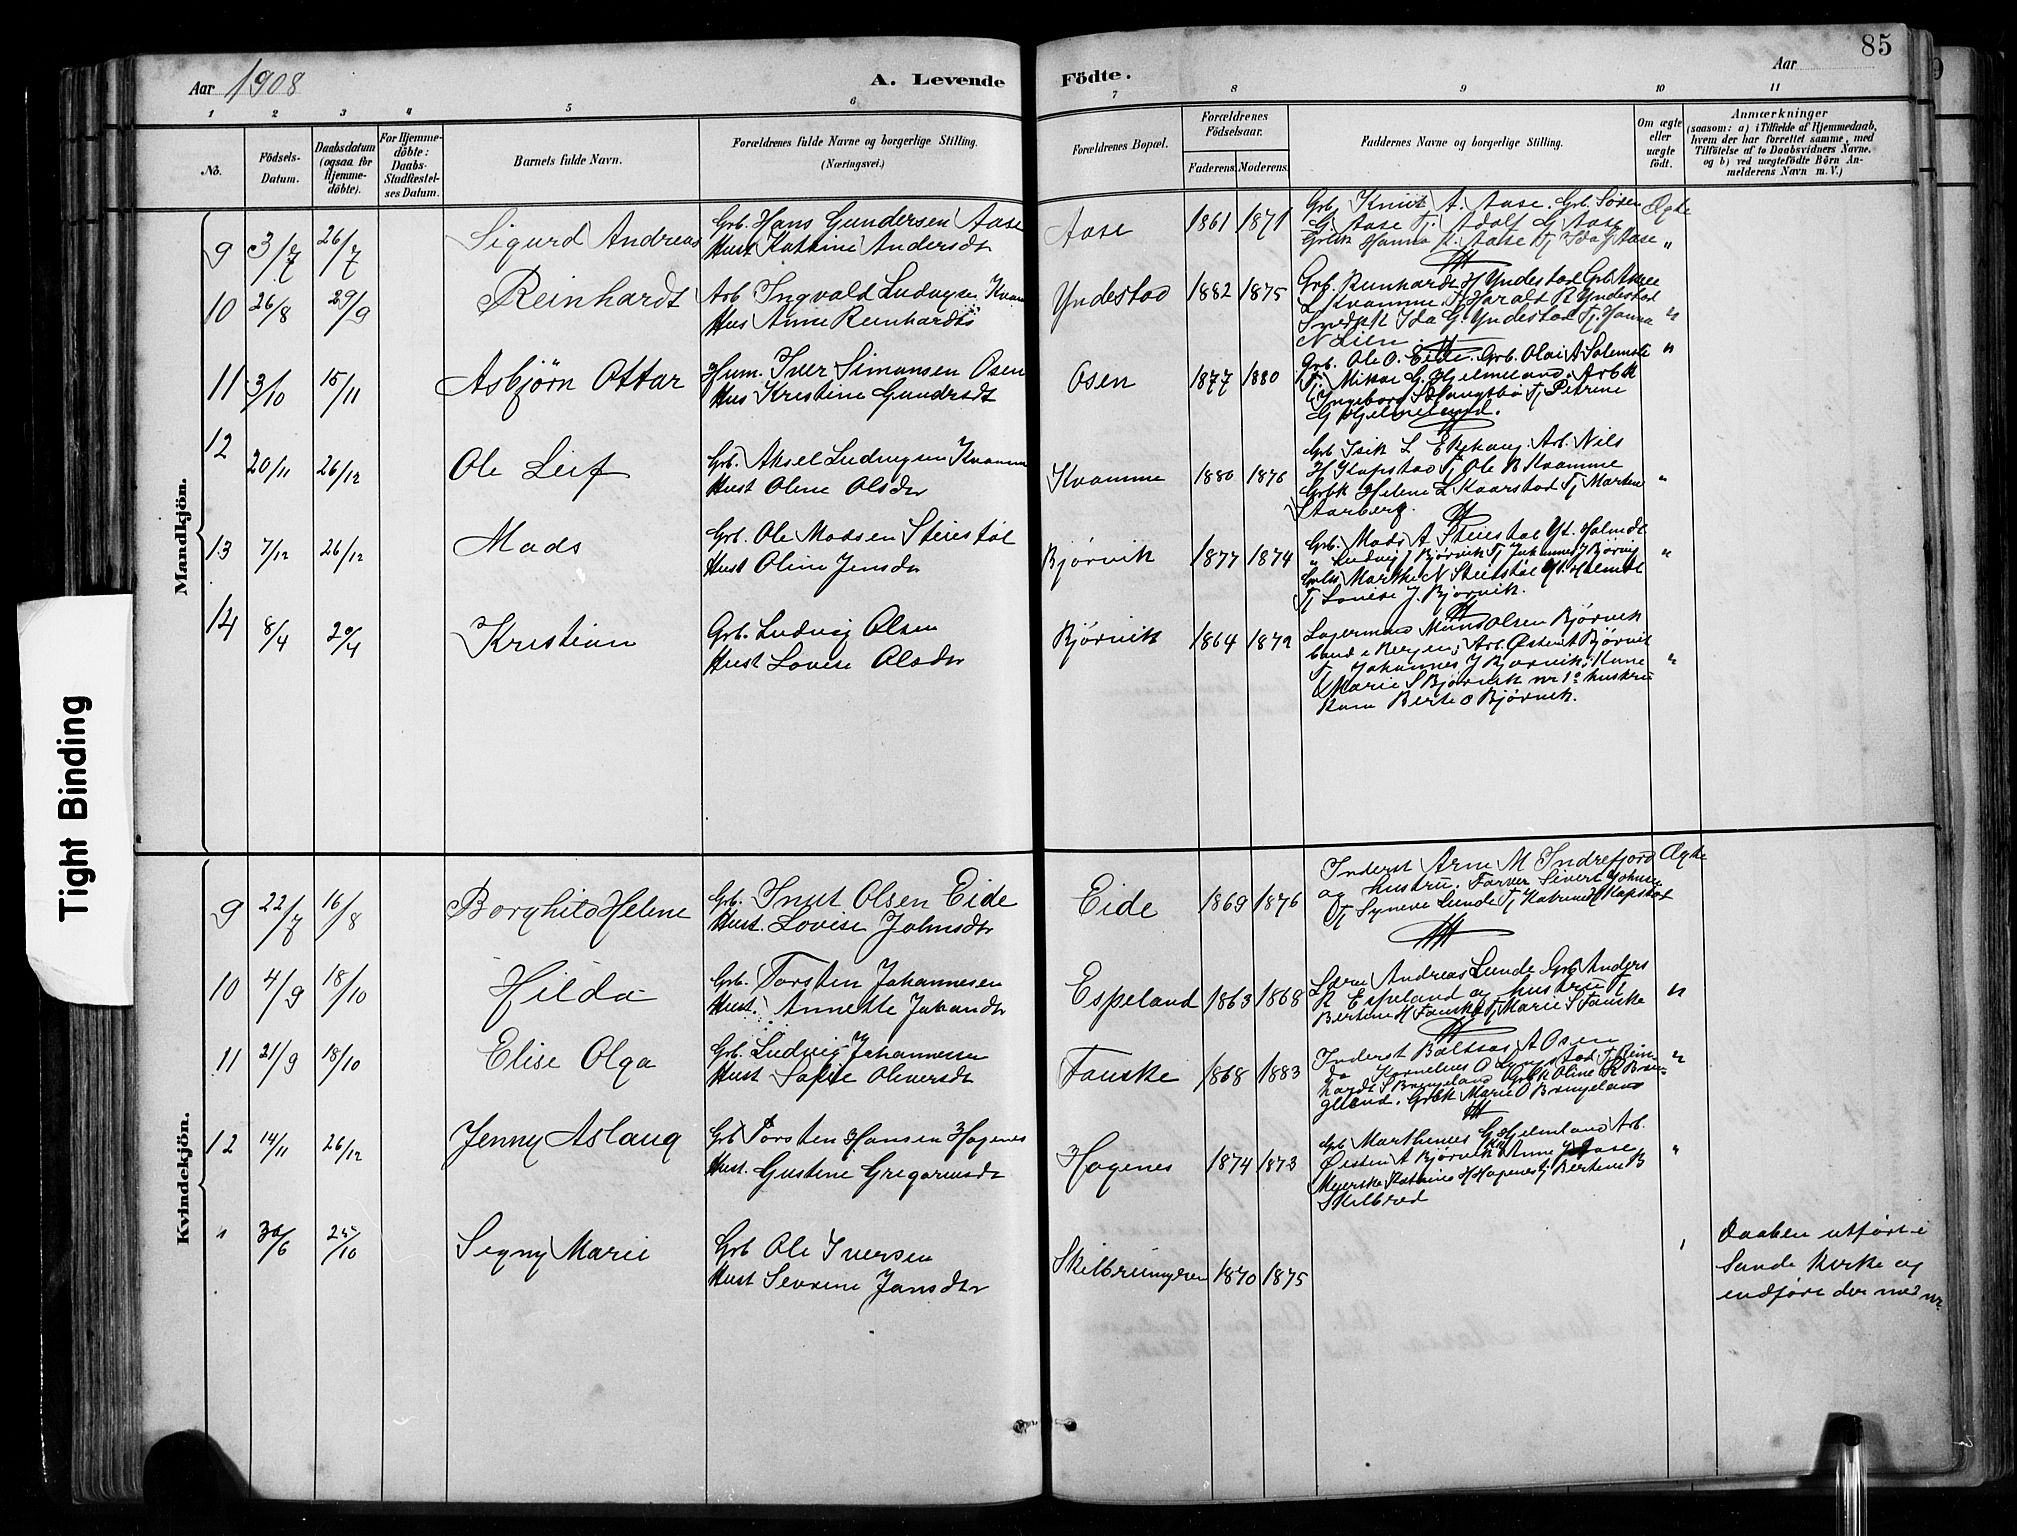 85
Aar 1908
A. Levende
Födte.
Aar
1 2 3 4 5 6 7 8 9 10 11
No.
Födsels-
Datum.
Daabsdatum
(ogsaa for
Hjemme-
döbte).
For Hjemme-
döbte:
Daabs-
Stadfæstel-
ses Datum.
Barnets fulde Navn.
Forældrenes fulde Navne og borgerlige Stilling.
(Næringsvei.)
Forældrenes Bopæl.
Forældrenes
Födselsaar.
Faderens. Moderens.
Faddernes Navne og borgerlige Stilling.
Om ægte
eller
uægte
født.
Anmærkninger
(saasom: a) i Tilfælde af Hjemmedaab,
hvem der har forrettet samme, med
Tilføielse af to Daabsvidners Navne,
og b) ved uægtefödte Börn An-
melderens Navn m. V.)
Mandkjön.
9 3/7 26/7 Sigurd Andreas
Grb. Hans Gundersen Aase
Hust Kathine Andersdr
Aase 1861 1871
Grb. Knut A. Aase. Grb. Søren
G Aase Tj. Adolf G Aase
Grbk Hanna A. Aase Tj Ida J Aase
Ægte
"
10 26/8 29/9 Reinhardt
Arb Ingvald Ludvigsen Kvam
Hus Anne Reinhardtsd
Yndestad 1882 1875
Grb. Reinhardt H Yndestad Grb Aksel
L Kvamme Tj. Harald R Yndestad
Snedkk Ida G. Yndestad Tj. Hanna
N Lien
"
11 3/10 15/11 Asbjørn Ottar
Hum. Iver Simonsen Osen
Hus Kristine Gundersdt
Osen 1877 1880
Grb. Ole O. Eide. Grb. Olai A
Tj. Mikal G. Hjelmeland. Arbk
Ingeborg S Tj Petrine
G Hjelmeland.
"
12 20/11 26/12 Ole Leif
Grb. Aksel Ludvigsen Kvamme
Hust Oline Olsdr
Kvamme 1880 1876
Grb Isik L Espehaug. Arb. Nils
H Kapstad Tj Ole B Kvamme
Grbk Helene L Kaarstad Tj Marten
Storberg.
"
13 7/12 26/12 Mads
Grb. Ole Madsen Steiestøl
Hust Oline Jensdr
Bjørvik 1877 1874
Grb. Mads A Steiestøl Yt. Holmedl
" Ludvig J Bjørvik Tj Johannes J Bjørvig
Grbk Marthe N Steiestøl Yt. Holmedl
Tj Lovise J. Bjørvik.
"
14 8/4 20/4 Kristian
Grb. Ludvig Olsen
Hust Lovise Olsdr
Bjørvik 1864 1872
Lagermand Mons Olsen Bjørvik
bund. i Bergen; Arb. Østen A Bjørvik
Tj Johannes J Bjørvik; Kone
Marie S Bjørvik nr 1° hustru
Kone Berte O Bjørvik.
"
Kvindekjön.
9 22/7 16/8 Borghild Helene
Grb. Knut Olsen Eide
Hust. Lovise Johnsdr
Eide 1869 1876
Inderst Arne M Indrefjord
og hustru. Farver Sivert Johnsen
Tj Syneve Lunde Tj Katrine H Kapstad
Ægte
10 4/9 18/10 Hilda
Grb. Torsten Johannesen
Hust. Annette Johansdr
Espeland 1863 1868
Andreas Lunde Grb Anders
R Espeland og hustru Tj
Bertine H Fauske Tj Marie S Fauske
"
11 21/9 18/10 Elise Olga
Grb. Ludvig Johannessen
Hust Sofie Oliversdt
Fauske 1868 1883
Inderst Baltsar A Osen
do Kornelius O Lyngstad Tj Rein-
hardt S Brengeland Grbk Oline R Bren-
geland. Grbk Marie O Brengeland
"
12 14/11 26/12 Jenny Aslaug
Grb Torsten Hansen Hogenes
Hust. Gustine Gregoriusdr
Hagenes 1874 1873
Grb Marthenius G Hjelmeland Arb.
Øisten A Bjørvik Anne J Aase
Meierske Kathrine H Hagenes Tj Bertine B
Skilbred
"
" 30/6 25/10 Signy Marie
Grb Ole Iversen
Hust Severine Jansdtr
Skilbreimyren 1870 1875
"
Daaben utført i
Sande Kirke og
indført der med nr.
Tight Binding